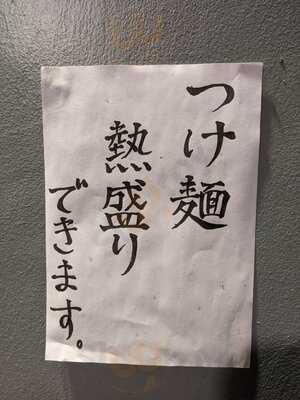 つけ麺
熱盛り
できます。